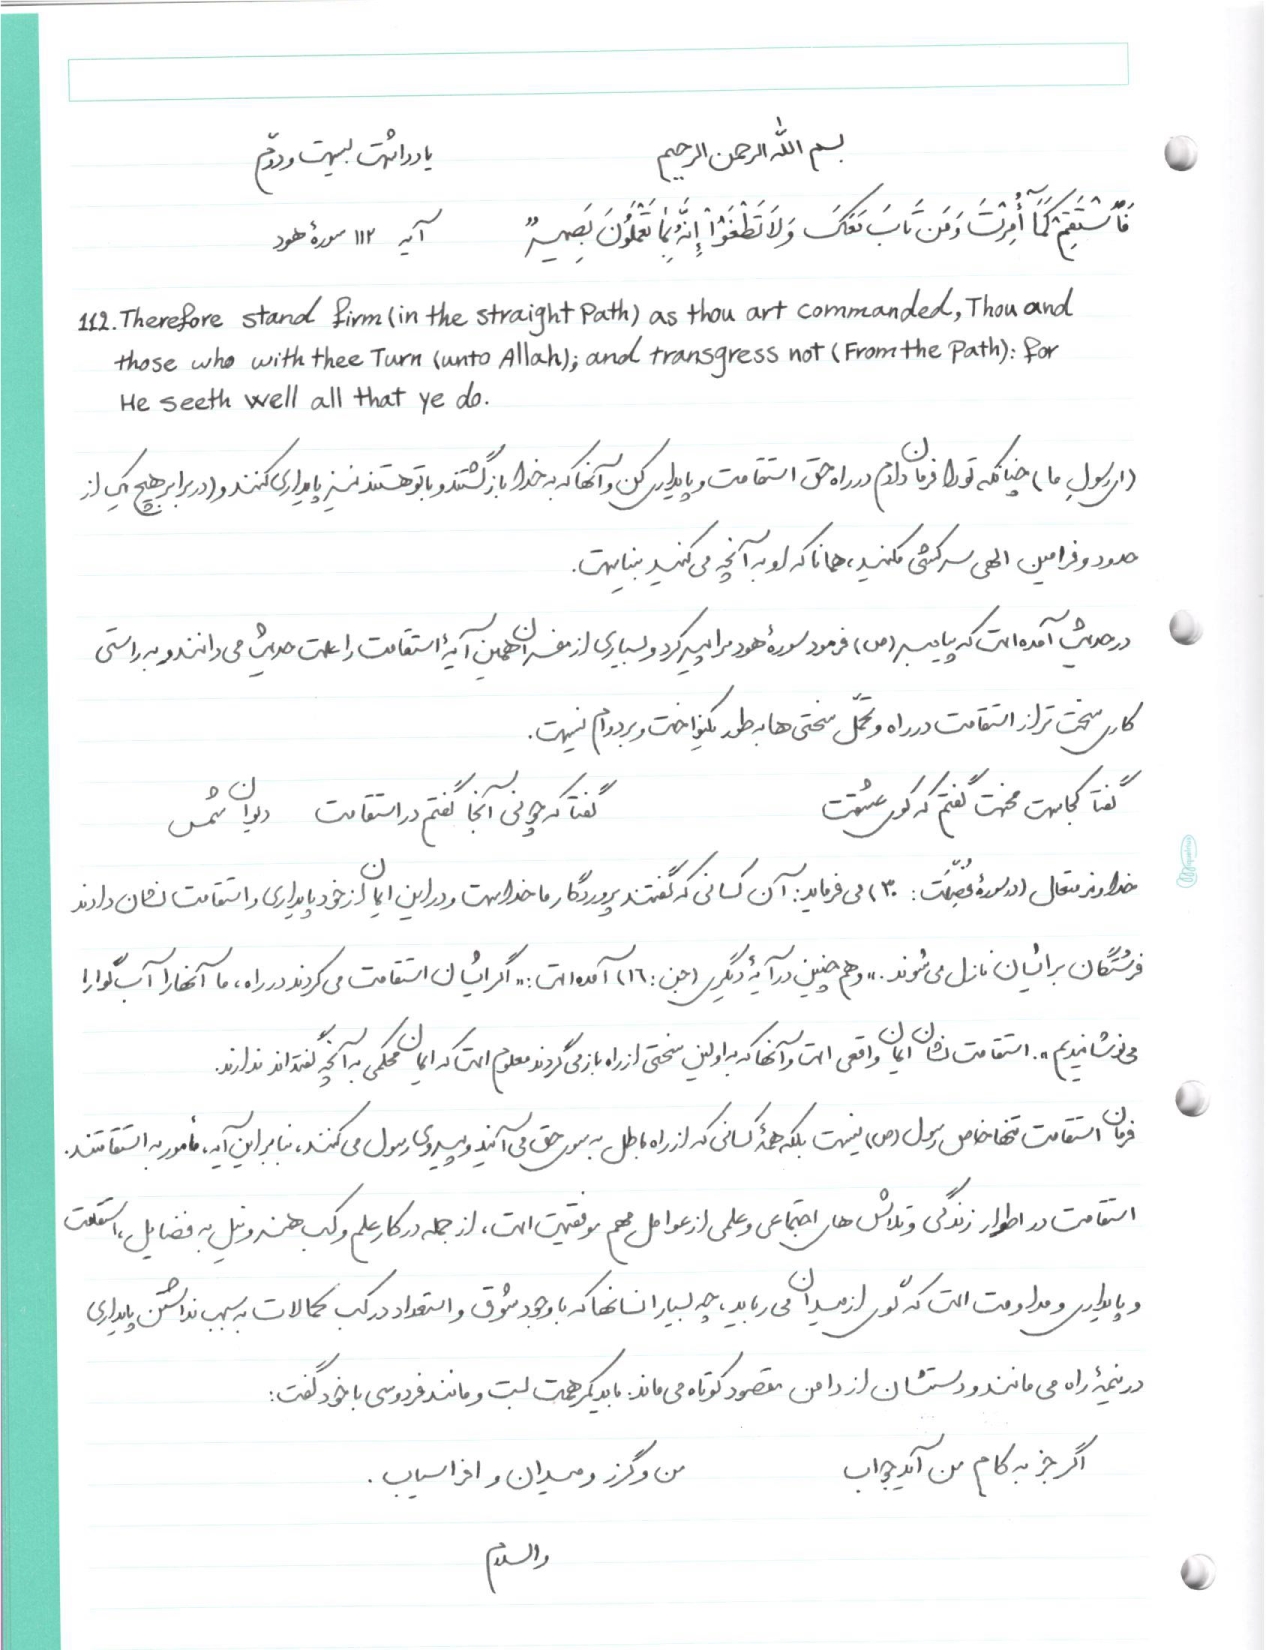 بسم الله الرحمن الرحیم یادداشت بیست و دوّم
فَٱسْتَقِمْ كَمَآ أُمِرْتَ وَمَن تَابَ مَعَكَ وَلَا تَطْغَوْا۟ إِنَّهُۥ بِمَا تَعْمَلُونَ بَصِيرٌ» آیه ۱۱۲ سورهٔ هود
112. Therefore stand firm (in the straight Path) as thou art commanded, Thou and
those who with thee Turn (unto Allah); and transgress not (From the Path): for
He seeth well all that ye do.
(ای رسولِ ما) چنانکه تو را فرمان دادم در راه حق استقامت و پایداری کن و آنها که به خدا بازگشتند و با تو هستند نیز پایداری کنند و (در برابر هیچ یک از
حدود و فرامین الهی سرکشی مکنید، همانا که او به آنچه می‌کنید بیناست.
در حدیث آمده است که پیامبر (ص) فرمود سورهٔ هود مرا پیر کرد و بسیاری از مفسران همین آیهٔ استقامت را علت حدیث می‌دانند و به راستی
کاری سخت تر از استقامت در راه و تحمّل سختی ها به طور یکنواخت و بر دوام نیست.
گفتا کجاست محنت گفتم که کوی عشقت گفتا که چونی آنجا گفتم در استقامت دیوان شمس
خداوند متعال (در سورهٔ فُصِّلَت: ۳۰) می فرماید: آن کسانی که گفتند پروردگار ما خداست و در این ایمان از خود پایداری و استقامت نشان دادند
فرشتگان بر ایشان نازل می‌شوند.» و هم چنین در آیهٔ دیگری (جن: ۱۶) آمده است: «اگر ایشان استقامت می کردند در راه، ما آنها را آب گوارا
می‌نوشانیدیم». استقامت نشان ایمان واقعی است و آنها که به اولین سختی از راه باز می گردند معلوم است که ایمان محکمی به آنچه گفته‌اند ندارند.
فرمان استقامت تنها خاص رسول (ص) نیست بلکه همهٔ کسانی که از راه باطل به سوی حق می آیند و پیروی رسول می کنند، بنا بر این آیه، مأمور به استقامتند.
استقامت در اطوار زندگی و تلاش های اجتماعی و علمی از عوامل مهم موفقیت است، از جمله در کار علم و کسب هنر و نیل به فضایل، استقامت
و پایداری و مداومت است که گوی از میدان می رباید، چه بسیار انسانها که با وجود شوق و استعداد در کسب کمالات به سبب نداشتن پایداری
در نیمهٔ راه می مانند و دستشان از دامن مقصود کوتاه می ماند. باید کمر همت بست و مانند فردوسی با خود گفت:
اگر جز به کام من آید جواب من و گرز و میدان و افراسیاب.
والسلام